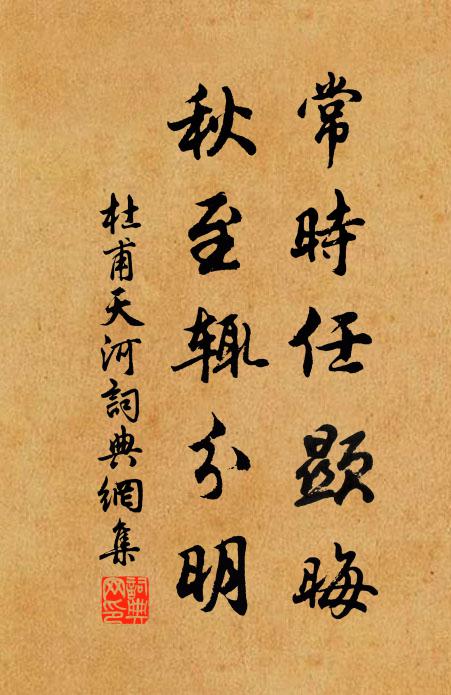 常時任顯晦
秋至輙分明
杜甫天河詞典網集
詞典
网印